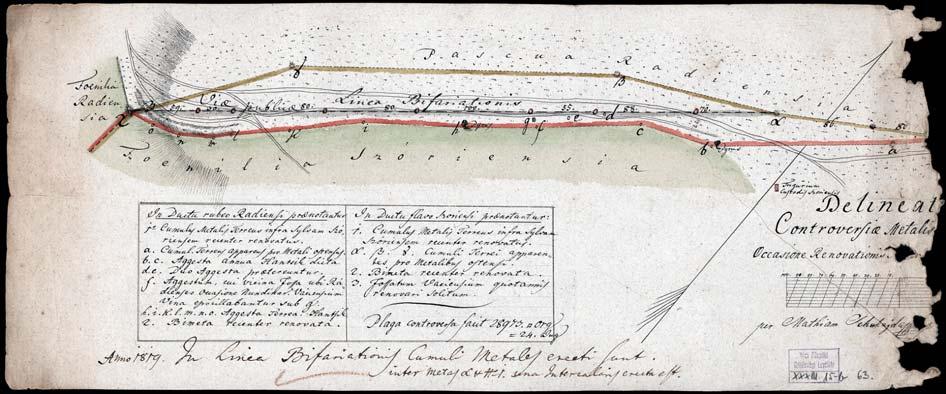 Pascua Radiensia
Foenilia
Radien-
sia
Viæ publicæ
Linea Bifariationis
Foenilia Szóriensia
Tugurium
Custodis Szoriensis
Delineat
Controversiæ Metalis
Occasione Renovationis
per Mathiam
In Ductu rubro Radiensi prænotantur
1º Cumulus Metalis Terreus infra Sylvam Szó-
riensem recenter renovatus.
a. Cumul. Terreus apparens pro Metali ostensus.
b. c. Aggesta annua Hantsik dicta.
d. e. Duo Aggesta prætereuntur.
f. Aggestum, cui vicina Fosa ubi Ra-
dienses Occasione Nundinar. Vaciensium
Vina epocillabantur sub g.
h. i. k. l. m. n. o. Aggesta Terrea Hantsik
2. Bimeta recenter renovata.
In Ductu flavo Szoriensi prænotantur:
1. Cumulus Metalis Terreus infra Sylvam
Szoriensem recenter renovatus.
α. β. γ. Cumuli Terrei apparen-
tes pro Metalibus ostensi.
2. Bimeta recenter renovata.
3. Fossatum Vaciensium quotannis
renovari solitum.
Plaga controversa facit 28973. □ Org
= 24. Jug
Anno 1819. In Linea Bifariationis Cumuli Metales erecti sunt.
inter metas α et N-1. una Intercalaris erecta est.
XXXIII 15-b 63.